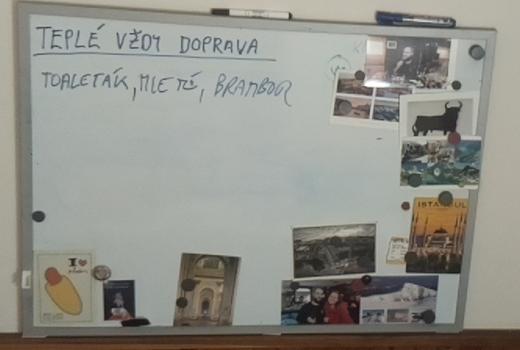 TEPLÉ VŽDY DOPRAVA
TOALEŤÁK, MLETÉ, BRAMBOR
ISTANBUL
I ❤